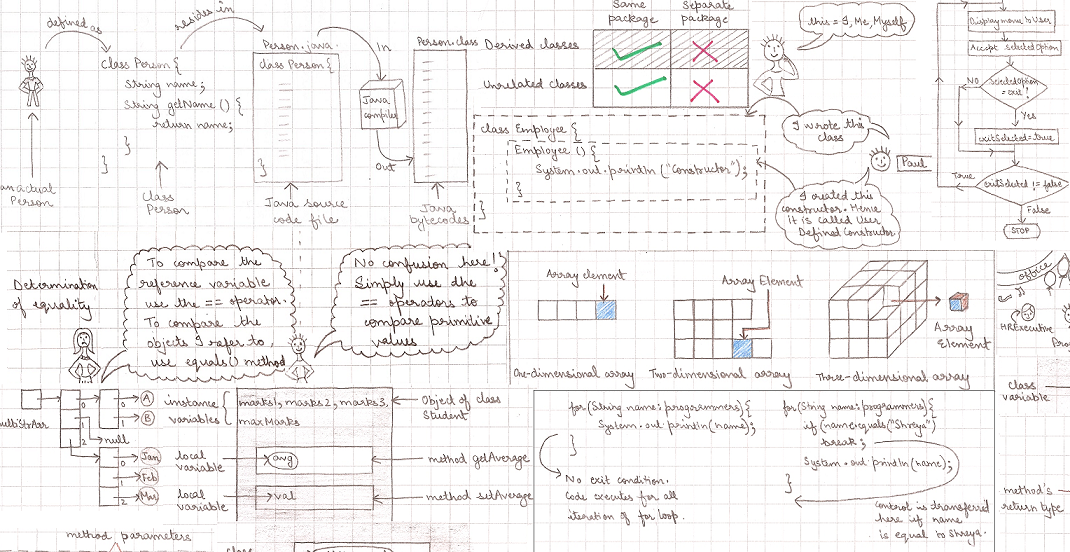 defined as
resides in
class Person {
String name;
String getName () {
return name;
}
}
an actual
Person
Class
Person
Person.java.
class Person {
}
Java source
code file
In
Java
compiler
Out
Person.class
Java
bytecodes
Same
package
Separate
package
Derived classes
Unrelated classes
this = I, Me, Myself
class Employee {
Employee () {
System.out.println ("Constructor");
}
}
I wrote this
class
Paul
I created this
constructor. Hence
it is called User
Defined Constructor
Display menu to User
Accept selectedOption
selectedOption
= exit?
NO
Yes
exitSelected=true
exitSelected != false
True
False
STOP
Determination
of equality
To compare the
reference variable
use the == operator.
To compare the
objects I refer to,
use equals() method
No confusion here!
Simply use the
== operators to
compare primitive
values
Array element
One-dimensional array
Array Element
Two-dimensional array
Array
Element
Three-dimensional array
office
HRExecutive
multiStrArr
0
1
2
null
0
1
A
B
0
1
2
Jan
Feb
Mar
instance
variables
marks1, marks2, marks3,
maxMarks
Object of class
Student
local
variable
avg
method getAverage
local
variable
val
method setAverage
method parameters
class
for(String name: programmers){
System.out.println(name);
}
No exit condition.
Code executes for all
iteration of for loop.
for(String name:programmers){
if (name.equals("Shreya")
break;
System.out.println(name);
}
Control is transferred
here if name
is equal to Shreya.
class
variable
method's
return type